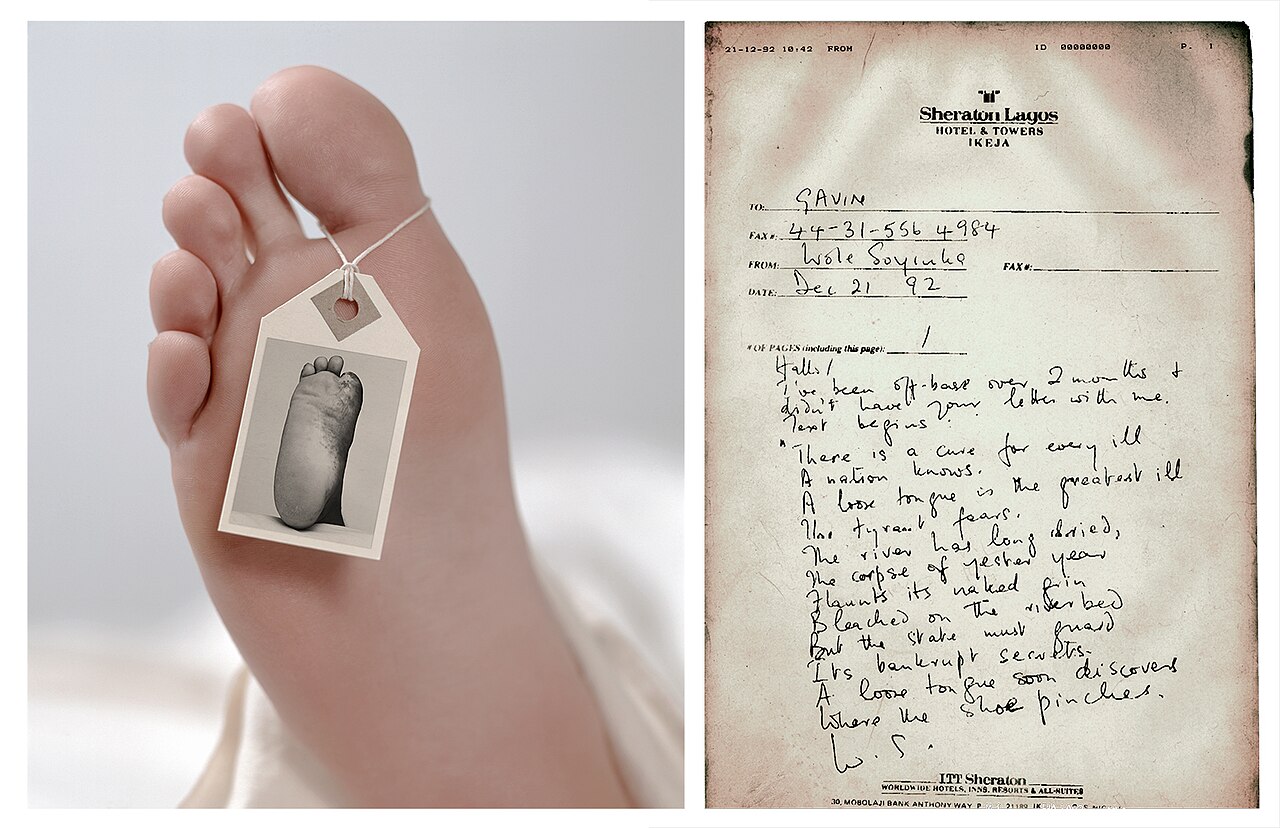 21-12-92 10:42 FROM ID 00000000 P. 1
Sheraton Lagos
HOTEL & TOWERS
IKEJA
TO: GAVIN
FAX#: 44-31-556 4984
FROM: Wole Soyinka FAX#:
DATE: Dec 21 92
# OF PAGES (including this page): 1
Hallo!
I've been off-base over 2 months &
didn't have your letter with me.
Text begins:
"There is a cure for every ill
A nation knows.
A loose tongue is the greatest ill
The tyrant fears.
The river has long dried,
The corpse of yester year
Flaunts its naked grin
Bleached on the riverbed
But the state must guard
Its bankrupt secrets.
A loose tongue soon discovers
Where the shoe pinches.
W. S.
ITT Sheraton
WORLDWIDE HOTELS, INNS, RESORTS & ALL-SUITES
30, MOBOLAJI BANK ANTHONY WAY, P.